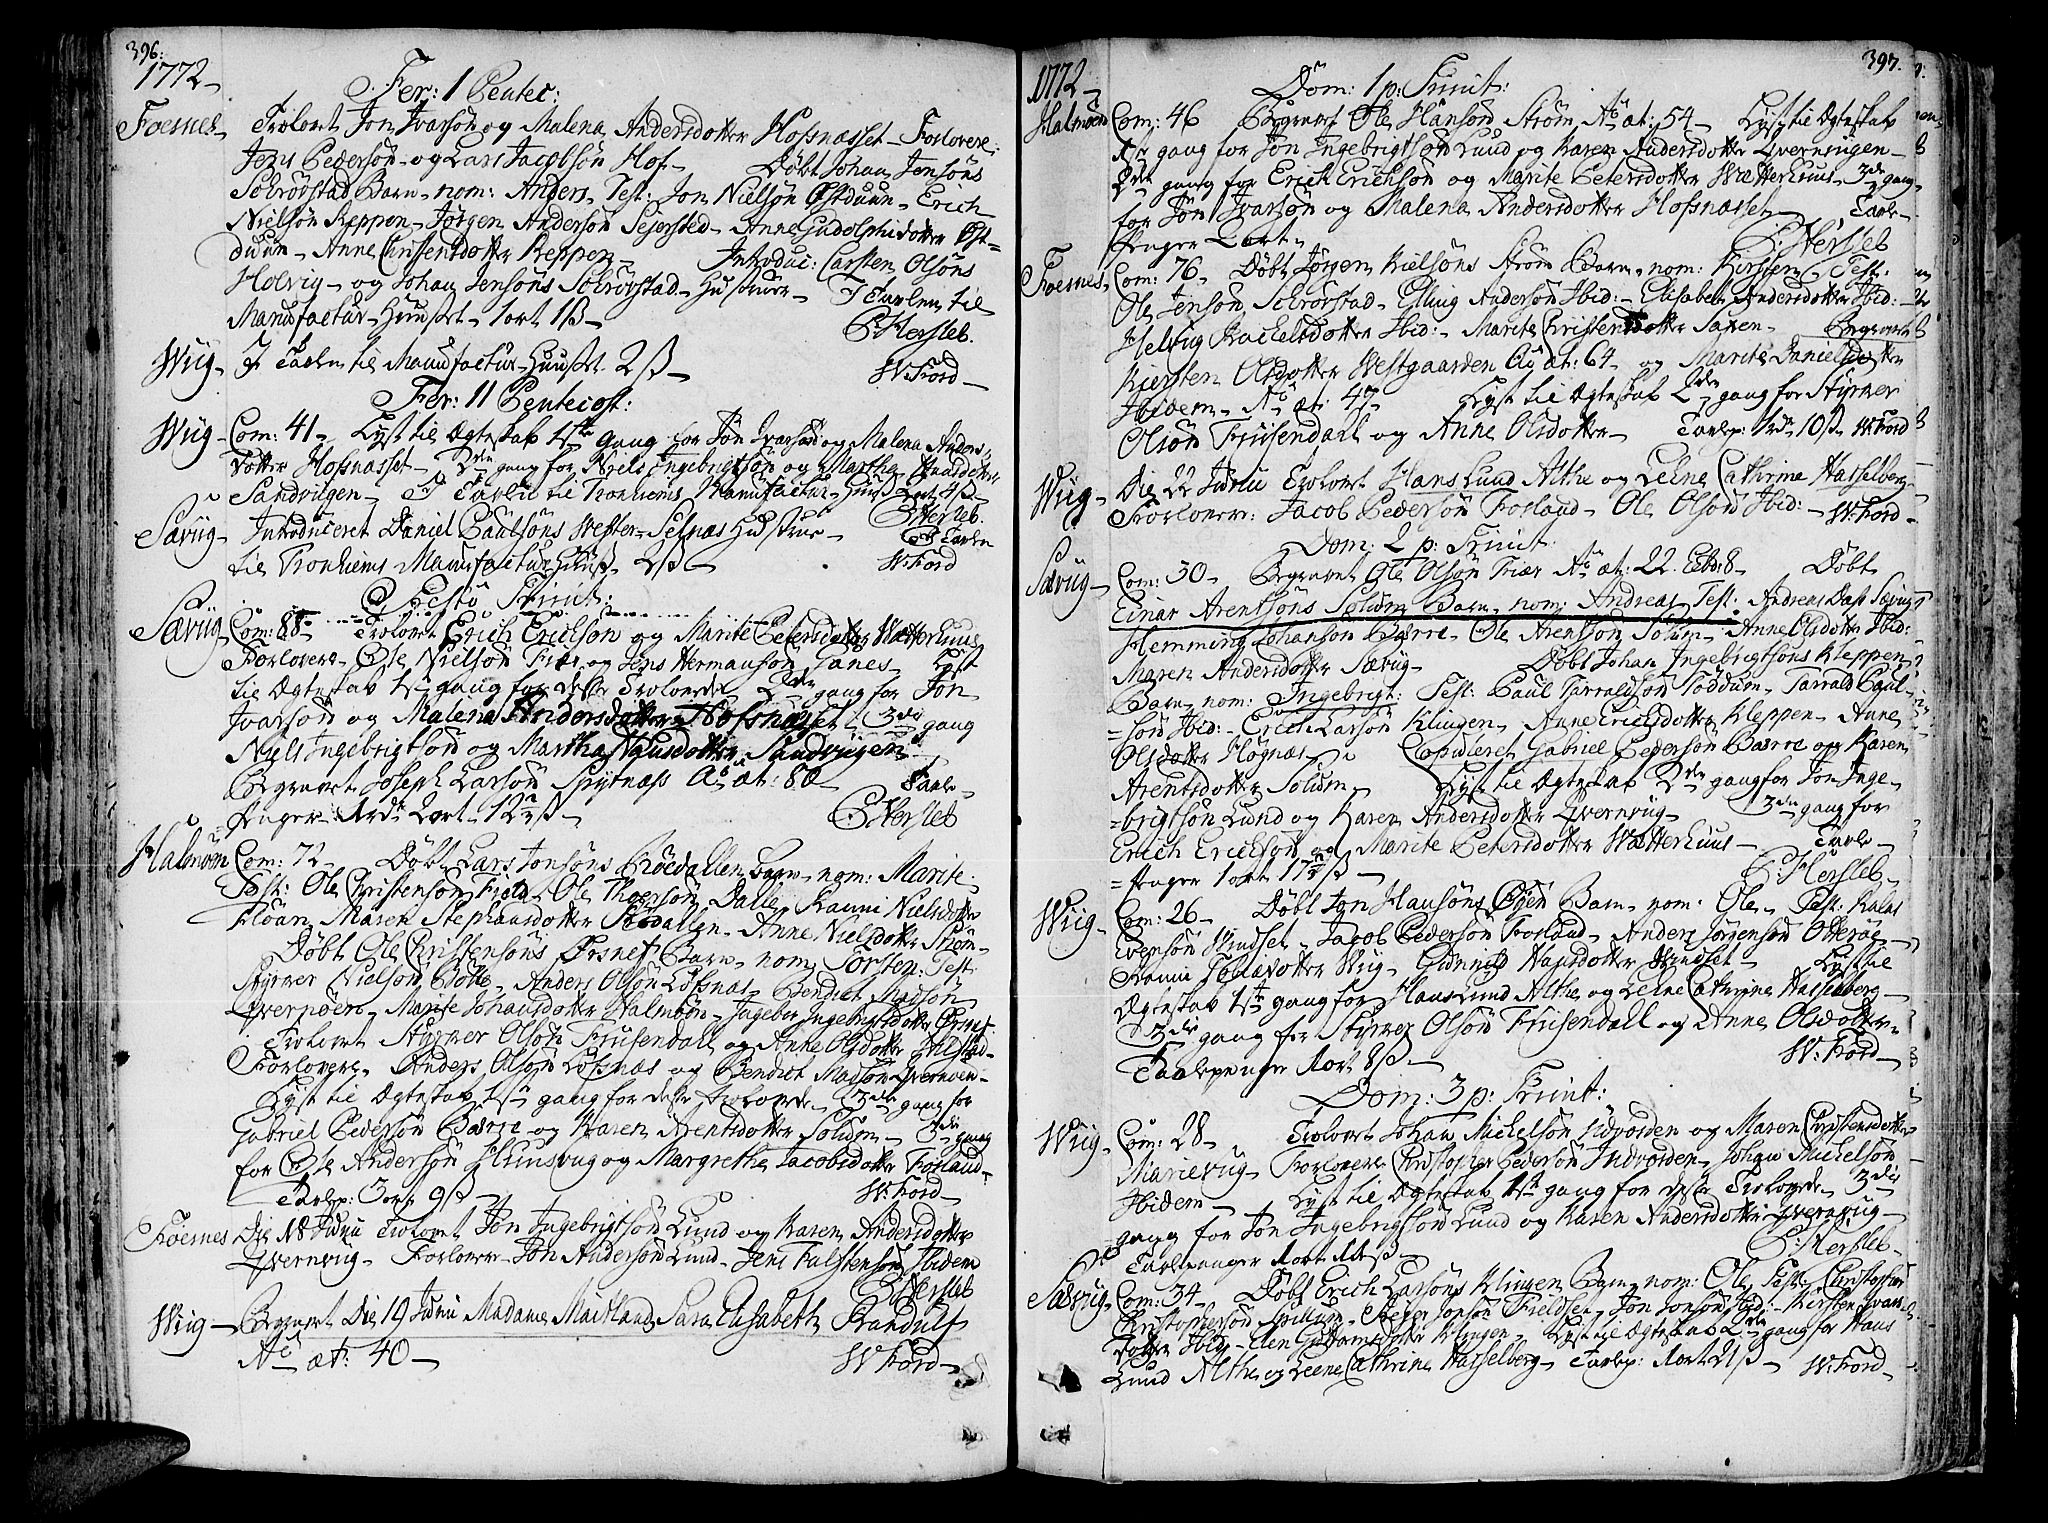 396.
1772
Fer: 1 Pentec:
Foesnes Trolovet Jon Ivarsøn og Malena Andersdotter Hofsnasset Forlovere:
Jens Pedersøn og Lars Jacobsøn Hof. Døbt Johan Jensøns
Solrøvstad Barn nom: Anders. Test: Jon Nielsøn Østduun Erich
Nielsøn Reppen Jørgen Andersøn Sejersted Anne Gudolphidotter Øst=
duun Anne Christensdotter Reppen Introduc: Carsten Olsøns
Holvig og Johan Jensøns Solrøvstad Hustruer I Tavlen til
Manufactur Huuset 1 ort 1 ß
P. Hersleb.
Wiig I Tavlen til Manufactur Huuset 2 ß
W. Ford
Fer: 11 Pentecost:
Wiig Com: 41 Lyst til Ægteskab 1ste gang for Jon Ivarsøn og Malena Anders
dotter Hofsnasset 2den gang for Niels Ingebrigtsøn og Martha Hansdotter
Sandvigen I Tavlen til Tronhiems Manufactur Huus 2 ort 4 ß
P. Hersleb.
Sævig Introduceret Daniel Paulsøns Vester Selnæs Hustrue I Tavlen
til Tronhiems Manufactur Huus 2 ß
W. Ford
Festo Trinit:
Sævig Com: 88 Trolovet Erich Erichsøn og Marite Petersdotter Wætterhuus
Forlovere Ole Nielsøn Triær og Jens Hermansøn Fanes Lyst
til Ægteskab 1ste gang for disse Trolovede 2den gang for Jon
Ivarsøn og Malena Andersdotter Hofsnasset 3die gang
Niels Ingebrigtsøn og Martha Hansdotter Sandvigen
Begravet Joseph Larsøn Spytnæss Ao æt: 80 Tavle
Penger 1 rdr 2 ort 12 ß
P. Hersleb
Halmøn Com: 72 Døbt Lars Jonsøns Røedallen Barn nom: Marite.
Test: Ole Christensøn Ole Thoersøn Dalle Ranni Nielsdotter
Floan Maren Stephansdotter Anne Nielsdotter
Døbt Ole Christensøns Ørsnes Barn nom Torsten: Test:
Styrver Nielsøn Botte Anders Olsøn Løfsnæs Bendict Madsøn
Qvernøen Marite Johansdotter Halmøen Ingebor Ingebrigtsdotter Ørsnes
Trolovet Styrver Olsøn Fuusendall og Anne Olsdotter
Forlovere Anders Olsøn Løfsnæs og Bendict Madsøn Qvernøen
Lyst til Ægteskab 1ste gang for disse Trolovede 3die gang for
Gabriel Pedersøn Bærre og Karen Arentsdotter Solum 3die gang
for Ole Andersøn Hunsvug og Margrethe Jacobsdotter Fosland
Tavlep: 3 ort 9 ß
W. Ford
Foesnes Die 18 Junii Trolovet Jon Ingebrigtsøn Lund og Karen Andersdotter
Qvernvug Forlovere Jon Andersøn Lund Jens Falstensøn Ibidem
P. Hersleb
Wiig Begravet Die 19 Junii Madame Maitland Sara Elisabeth Randulf
Ao æt: 40
W. Ford
397.
1772
Dom: 1 p: Trinit:
Halmøen Com: 46 Begravet Ole Hansøn Strøm Ao æt: 54 Lyst til Ægteskab
1ste gang for Jon Ingebrigtsøn Lund og Karen Andersdotter Qvernvigen
2den gang for Erich Erichsøn og Marite Petersdotter Wætterhuus 3die gang
for Jon Ivarsøn og Malena Andersdotter Hofsnasset Tavle
Penger 2 ort
P. Hersleb
Foesnes Com: 76 Døbt Jørgen Kielsøns Strøm Barn nom: Kirsten Test:
Ole Jensøn Solrøvstad Elling Andersøn Ibid: Elisabeth Andersdotter Ibid:
Helvig Ibid: Marite Christensdotter Saxen Begravet
Kiersten Olsdotter Westgaarden Ao æt: 64 og Marite Danielsdotter
Ibidem Ao æt: 47 Lyst til Ægteskab 2den gang for Styrver
Olsøn Fuusendall og Anne Olsdotter Tavlep: 1 rdr 10 ß W. Ford
Wiig Die 22 Junii Trolovet Hans Lund Althe og Leene Cathrine Hasselberg
Forlovere: Jacob Pedersøn Fosland Ole Olsøn Ibid: W. Ford
Dom: 2 p: Trinit:
Sævig Com: 30 Begravet Ole Olsøn Triær Ao æt: 22. Døbt
Einar Arentsøns Solum Barn nom: Andreas Test: Andreas Dass Sævig
Hemming Johansøn Bærre Ole Arentsøn Solum Anne Olsdotter Ibid:
Maren Andersdotter Sævig Døbt Johan Ingebrigtsøns Kleppen
Barn nom: Ingebrigt: Test: Paul Tarraldsøn Føddum Tarrald Paul=
=søn Ibid: Erich Larsøn Klingen Anne Erichsdotter Kleppen Anne
Olsdotter Høgnæs Copuleret Gabriel Pedersøn Bærre og Karen
Arentsdotter Solum Lyst til Ægteskab 2den gang for Jon Inge=
=brigtsøn Lund og Karen Andersdotter Qvernvug 3die gang for
Erich Erichsøn og Marite Petersdotter Wætterhuus Tavle=
=Penger 1 ort 17 ß
P. Hersleb
Wiig Com: 26 Døbt Jon Hansøns Barn nom: Ole Test:
Evensøn Windset Jacob Pedersøn Fosland Anders Jørgensøn Otterøe
Ranni Wiig Gunnild Hansdotter Windset Lyst til
Ægteskab 1ste gang for Hans Lund Althe og Leene Cathrine Hasselberg
3die gang for Styrver Olsøn Fuusendall og Anne Olsdotter
Tavlepenger 1 ort 8 ß
W. Ford
Dom: 3 p: Trinit:
Wiig Com: 28 Trolovet Johan Michelsøn Indvorden og Maren Christensdotter
Marievug Forlovere Christopher Pedersøn Indvorden Johan Michelsøn
Ibidem Lyst til Ægteskab 1ste gang for disse Trolovede 3die
gang for Jon Ingebrigtsøn Lund og Karen Andersdotter Qvernvug
Tavlepenger 1 ort
P. Hersleb
Sævig Com: 34 Døbt Erich Larsøns Klingen Barn nom: Ole Test: Christopher
Christophersøn Spillum Peder Jonsøn Fieldset Jon Jonsøn Ibid: Kirsten Ivars
dotter Ibid: Elen Guttormsdotter Klingen Lyst til Ægteskab 2den gang for Hans
Lund Althe og Leene Cathrine Hasselberg Tavlep: 1 ort 21 ß W. Ford